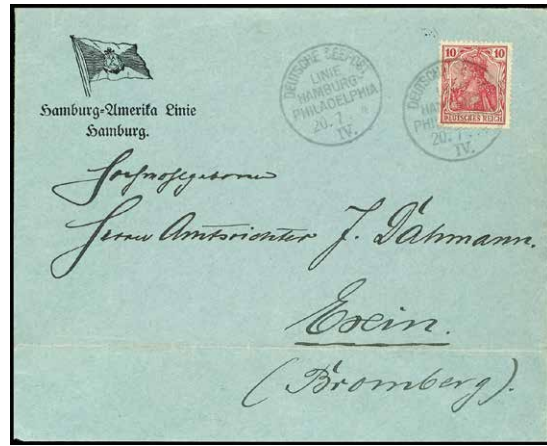 Hamburg-Amerika Linie
Hamburg.
DEUTSCHE SEEPOST
LINIE
HAMBURG-
PHILADELPHIA
20. 7
IV.
10 10
DEUTSCHES REICH
Hochwohlgeboren
Herrn Amtsrichter J. Dähmann.
Exin.
(Bromberg).